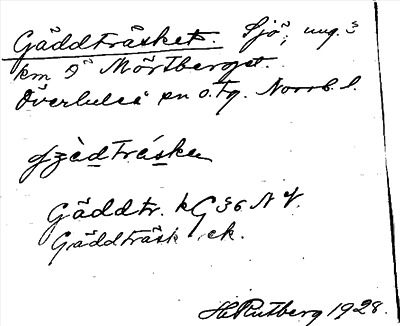 Gäddträsket. Sjö, ung. 3
km S Mörtberget.
Överluleå sn o. tg. Norrb. l.
Gäddtr. kG 36 NV.
Gäddträsk ek.
H. Rutberg 1928.